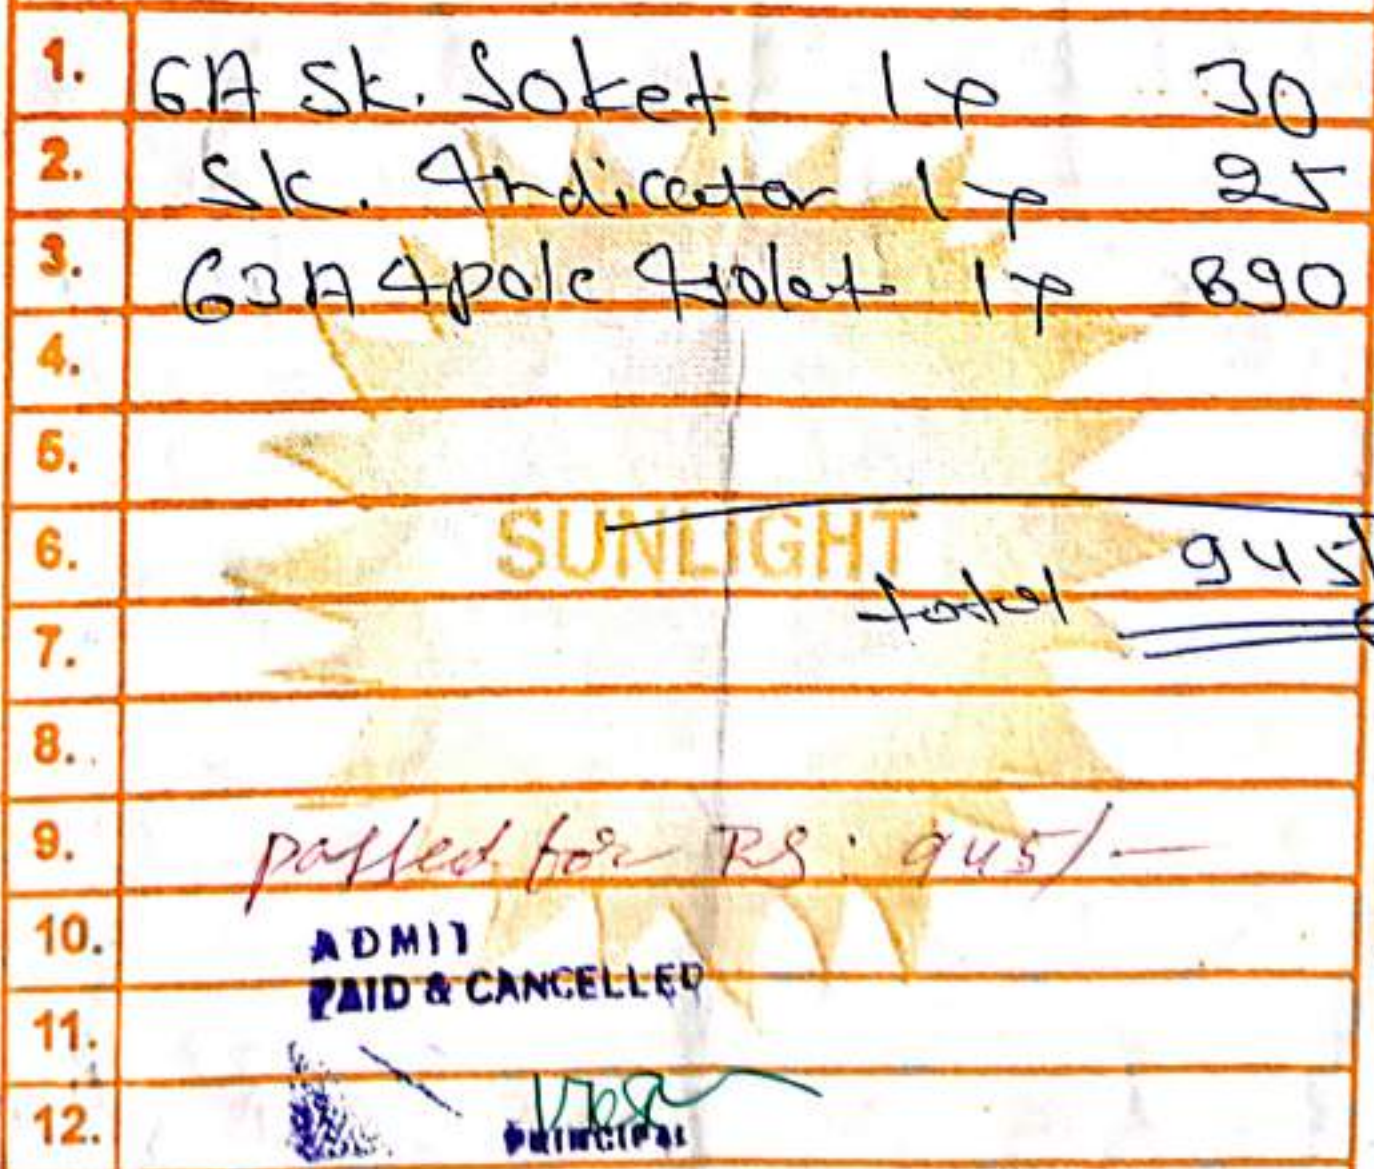 1. 6A Sk. Soket 1 p 30
2. Sk. Indicator 1 p 25
3. 63A 4pole 1 p 890
4.
5.
SUNLIGHT
6. 945/
total
7.
8.
9. passed for RS. 945/-
10. ADMIT
PAID & CANCELLED
11.
12. PRINCIPAL